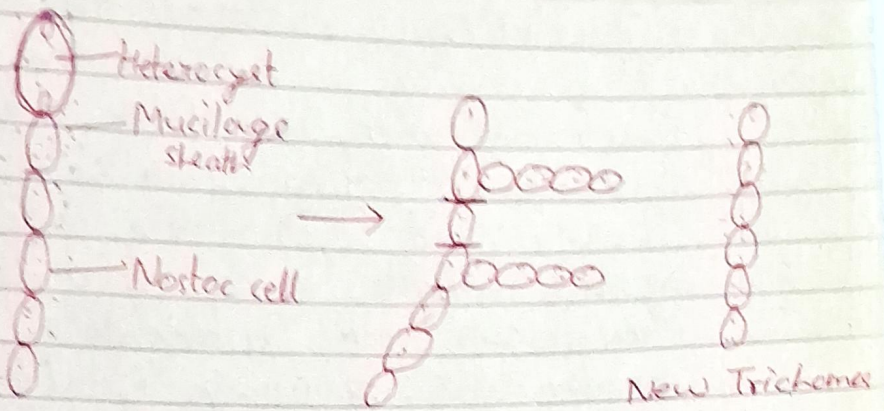 Heterocyst
Mucilage
sheath
Nostoc cell
New Trichomes